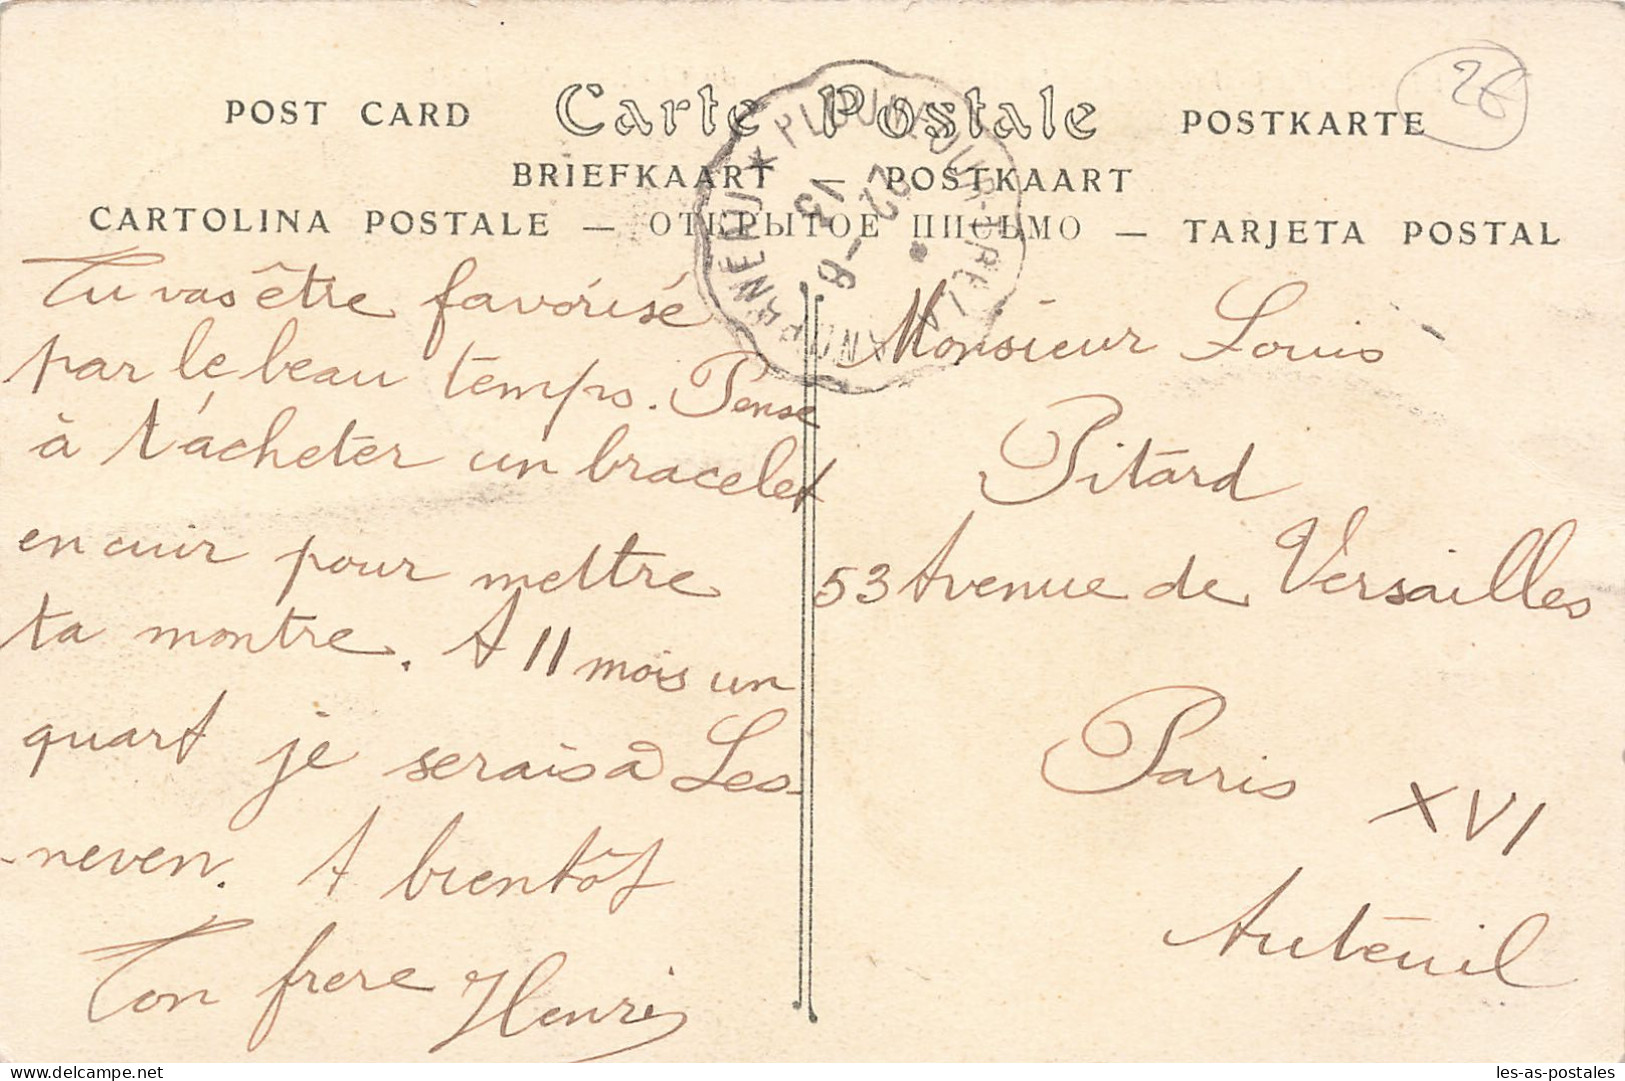 26
POST CARD Carte Postale POSTKARTE
BRIEFKAART — POSTKAART
CARTOLINA POSTALE — ОТКРЫТОЕ ПИСЬМО — TARJETA POSTAL
22 - 6
13
Tu vas être favorisé
par le beau temps. Pense
à t'acheter un bracelet
en cuir pour mettre
ta montre. A 11 mois un
quart je serais à Les-
-neven. A bientôt
Ton frere Henri
Monsieur Louis
Pitard
53 Avenue de Versailles
Paris XVI
Auteuil
delcampe.net
les-as-postales